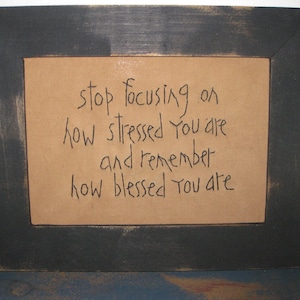 stop focusing on
how stressed you are
and remember
how blessed you are